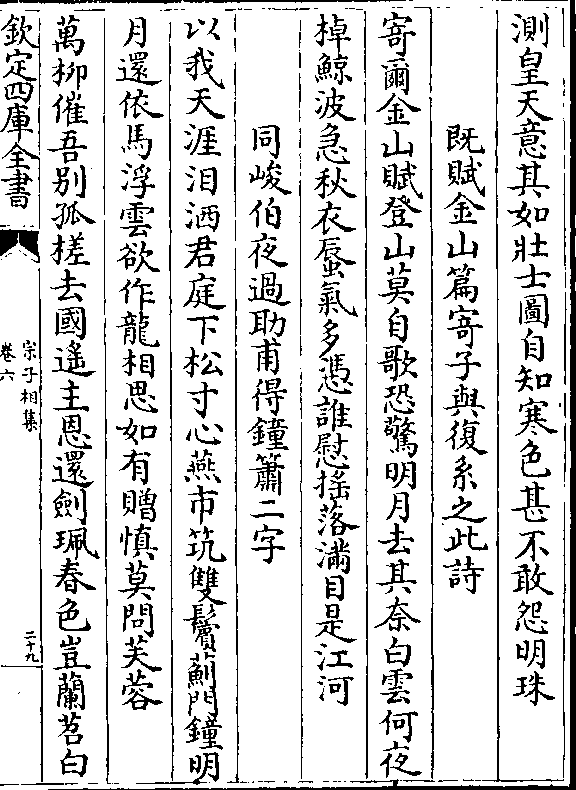 測皇天意其如壯士圖自知寒色甚不敢怨明珠
既賦金山篇寄子與復系之此詩
寄爾金山賦登山莫自歌恐驚明月去其奈白雲何夜
棹鯨波急秋衣蜃氣多憑誰慰摇落滿目是江河
同峻伯夜過助甫得鐘簫二字
以我天涯泪洒君庭下松寸心燕市筑雙鬢薊門鐘明
月還依馬浮雲欲作龍相思如有贈慎莫問芙蓉
萬柳催吾别孤槎去國遙主恩還劍珮春色豈蘭苕白
欽定四庫全書
宗子相集
卷六
二十九